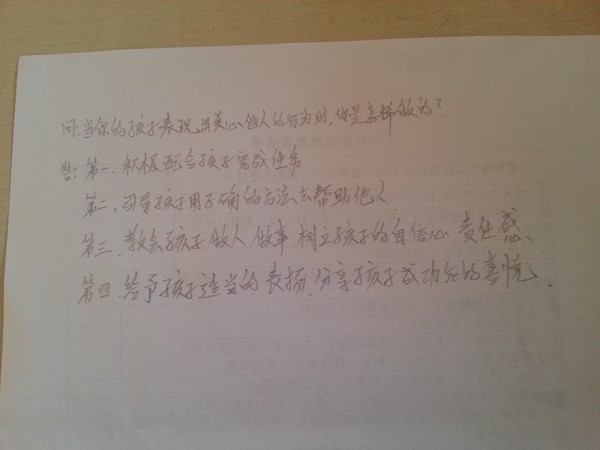 问:当你的孩子表现出关心他人的行为时,你是怎样做的?
答:第一.积极配合孩子完成任务
第二、引导孩子用正确的方法去帮助他人
第三、教会孩子做人做事.树立孩子的自信心、责任感、
第四 给予孩子适当的表扬.分享孩子成功的喜悦.